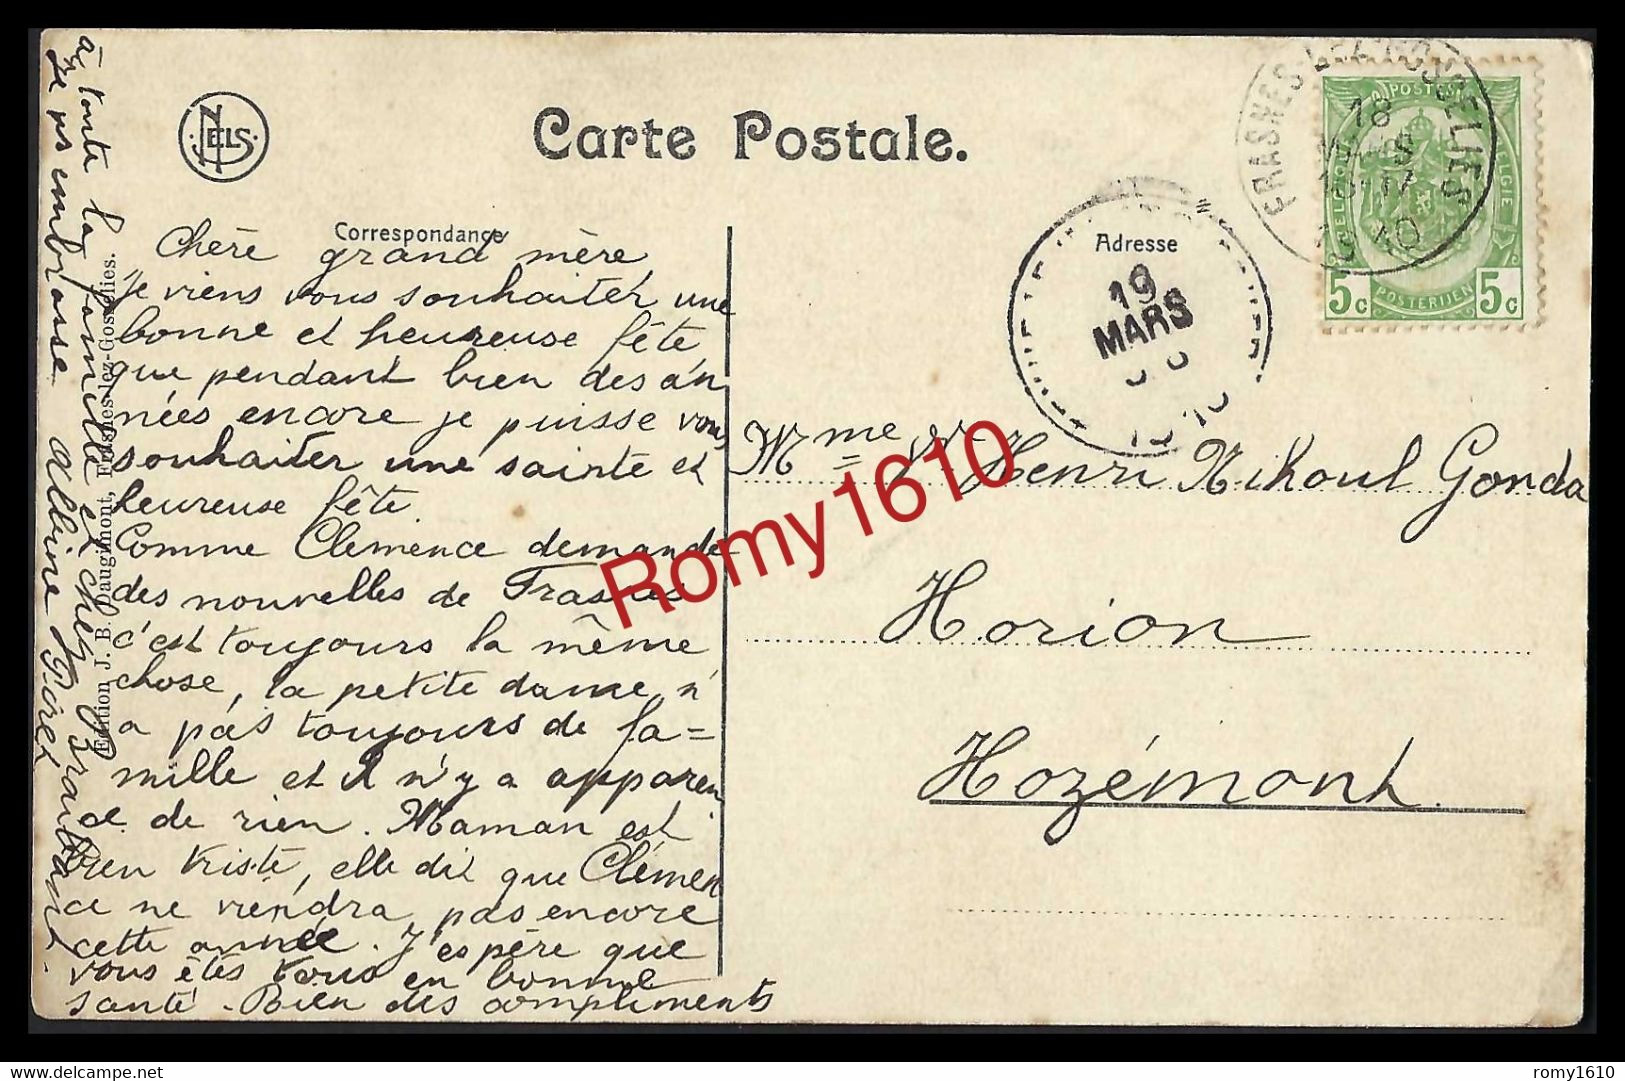 NELS
Carte Postale.
Correspondance
Adresse
FRASNES-LEZ-GOSSELIES
18
1910
POSTES
BELGIQUE
BELGIE
5c
POSTERIJEN
5c
19
MARS
Chère grand mère,
je viens vous souhaiter une
bonne et heureuse fête,
que pendant bien des an
nées encore je puisse vous
souhaiter une sainte et
heureuse fête.
Comme Clemence demande
des nouvelles de Frasnes
c'est toujours la même
chose, la petite dame n'
a pas toujours de fa=
mille et il n'y a apparen
ce de rien. Maman est
bien triste, elle dit que Clémen
ce ne viendra pas encore
cette année. J'espère que
vous êtes tous en bonne
santé. Bien des compliments
à toute la famille et chez Brabant.
Je vs embrasse Albine Piret
Edition J. B. Daugimont, Frasnes-lez-Gosselies.
Mme Ve Henri Nihoul Gonda
Horion
Hozémont.
Romy1610
delcampe.net
romy1610